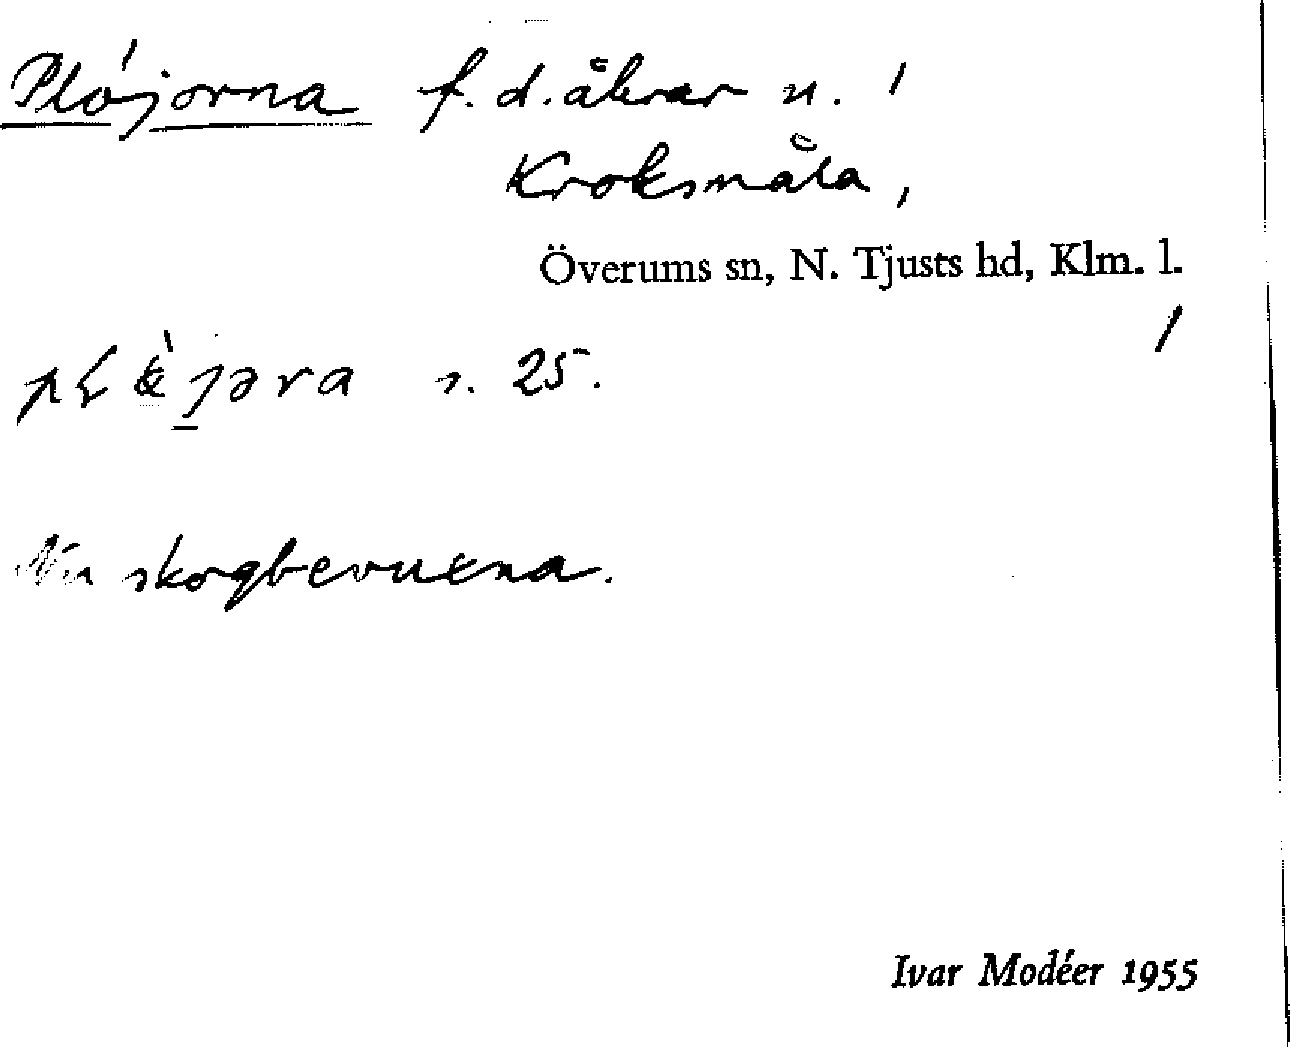 Plöjorna f. d. åkrar u.
Kroksmåla,
Överums sn, N. Tjusts hd, Klm. l.
s. 25.
Nu skogbevuxna.
Ivar Modéer 1955